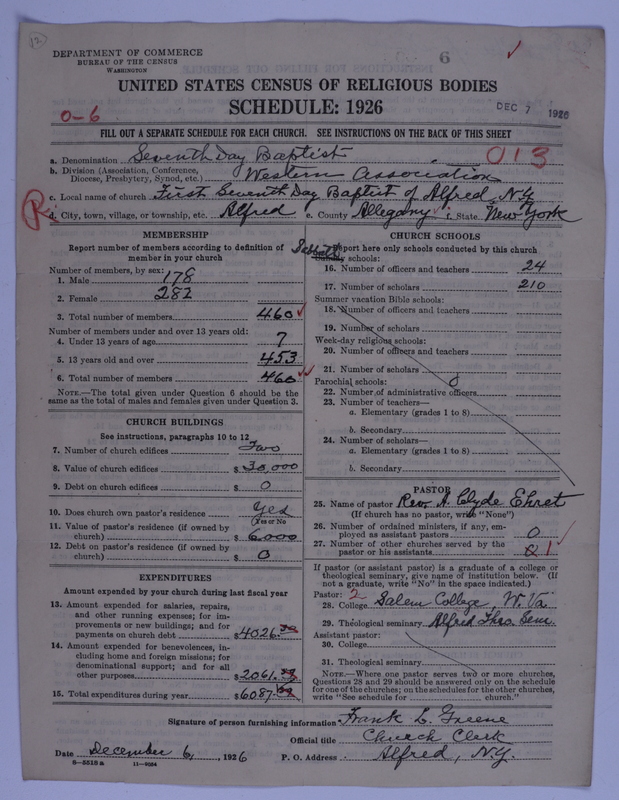 12.
DEPARTMENT OF COMMERCE
BUREAU OF THE CENSUS
WASHINGTON
6
UNITED STATES CENSUS OF RELIGIOUS BODIES
SCHEDULE: 1926
0-6
DEC 7 1926
FILL OUT A SEPARATE SCHEDULE FOR EACH CHURCH. SEE INSTRUCTIONS ON THE BACK OF THIS SHEET
a. Denomination Seventh Day Baptist 013
b. Division (Association, Conference, Diocese, Presbytery, Synod, etc.) Western Association
c. Local name of church First Seventh Day Baptist of Alfred, N.Y.
R
d. City, town, village, or township, etc. Alfred e. County Allegany f. State New York
MEMBERSHIP
Report number of members according to definition of member in your church
Number of members, by sex:
1. Male 178
2. Female 282
3. Total number of members 460
Number of members under and over 13 years old:
4. Under 13 years of age 7
5. 13 years old and over 453
6. Total number of members 460
NOTE.—The total given under Question 6 should be same as the total of males and females given under Question 3.
CHURCH BUILDINGS
See instructions, paragraphs 10 to 12
7. Number of church edifices Two
8. Value of church edifices $ 35,000
9. Debt on church edifices $ 0
10. Does church own pastor's residence Yes
(Yes or No)
11. Value of pastor's residence (if owned by church) $ 6,000
12. Debt on pastor's residence (if owned by church) $ 0
EXPENDITURES
Amount expended by your church during last fiscal year
13. Amount expended for salaries, repairs, and other running expenses; for improvements or new buildings; and for payments on church debt $4026.
14. Amount expended for benevolences, including home and foreign missions; for denominational support; and for all other purposes $2061.
15. Total expenditures during year $6087.
CHURCH SCHOOLS
Report here only schools conducted by this church
Sabbath
Sunday schools:
16. Number of officers and teachers 24
17. Number of scholars 210
Summer vacation Bible schools:
18. Number of officers and teachers
19. Number of scholars
Week-day religious schools:
20. Number of officers and teachers
21. Number of scholars
Parochial schools: 0
22. Number of administrative officers
23. Number of teachers—
a. Elementary (grades 1 to 8)
b. Secondary
24. Number of scholars—
a. Elementary (grades 1 to 8)
b. Secondary
PASTOR
25. Name of pastor Rev. A. Clyde Ehret
(If church has no pastor, write "None")
26. Number of ordained ministers, if any, employed as assistant pastors 0
27. Number of other churches served by the pastor or his assistants 1
If pastor (or assistant pastor) is a graduate of a college or theological seminary, give name of institution below. (If not a graduate, write "No" in the space indicated.)
Pastor: 2
28. College Salem College, W. Va.
29. Theological seminary Alfred Theo. Sem.
Assistant pastor:
30. College
31. Theological seminary
NOTE.—Where one pastor serves two or more churches, Questions 28 and 29 should be answered only on the schedule for one of the churches; on the schedules for the other churches, write "See schedule for church."
Signature of person furnishing information Frank L. Greene
Official title Church Clerk
Date December 6, 1926 P. O. Address Alfred, N.Y.
8-5518 a 11-9664